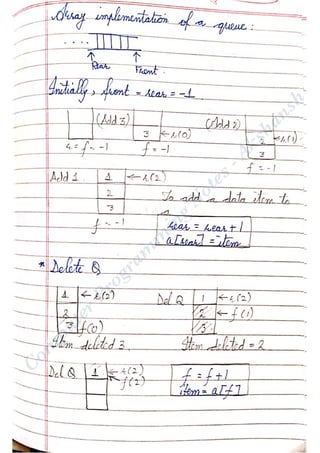 Array implementation of a queue:
Rear Front.
Initially, front = rear = -1
(Add 3) (Add 2)
3 ← r(0) 2 ← r(1)
3
r = f = -1 f = -1 f = -1
Add 1 1 ← r(2)
2 To add a data item to
3
f = -1 rear = rear + 1
a[rear] = item
* Delete Q
1 ← r(2) Del Q 1 ← r(2)
2 2 ← f(1)
3 f(0) 3
Item deleted 3. Item deleted = 2
Del Q 1 ← r(2) f = f + 1
f(2) item = a[f]
Computer Programming Notes -